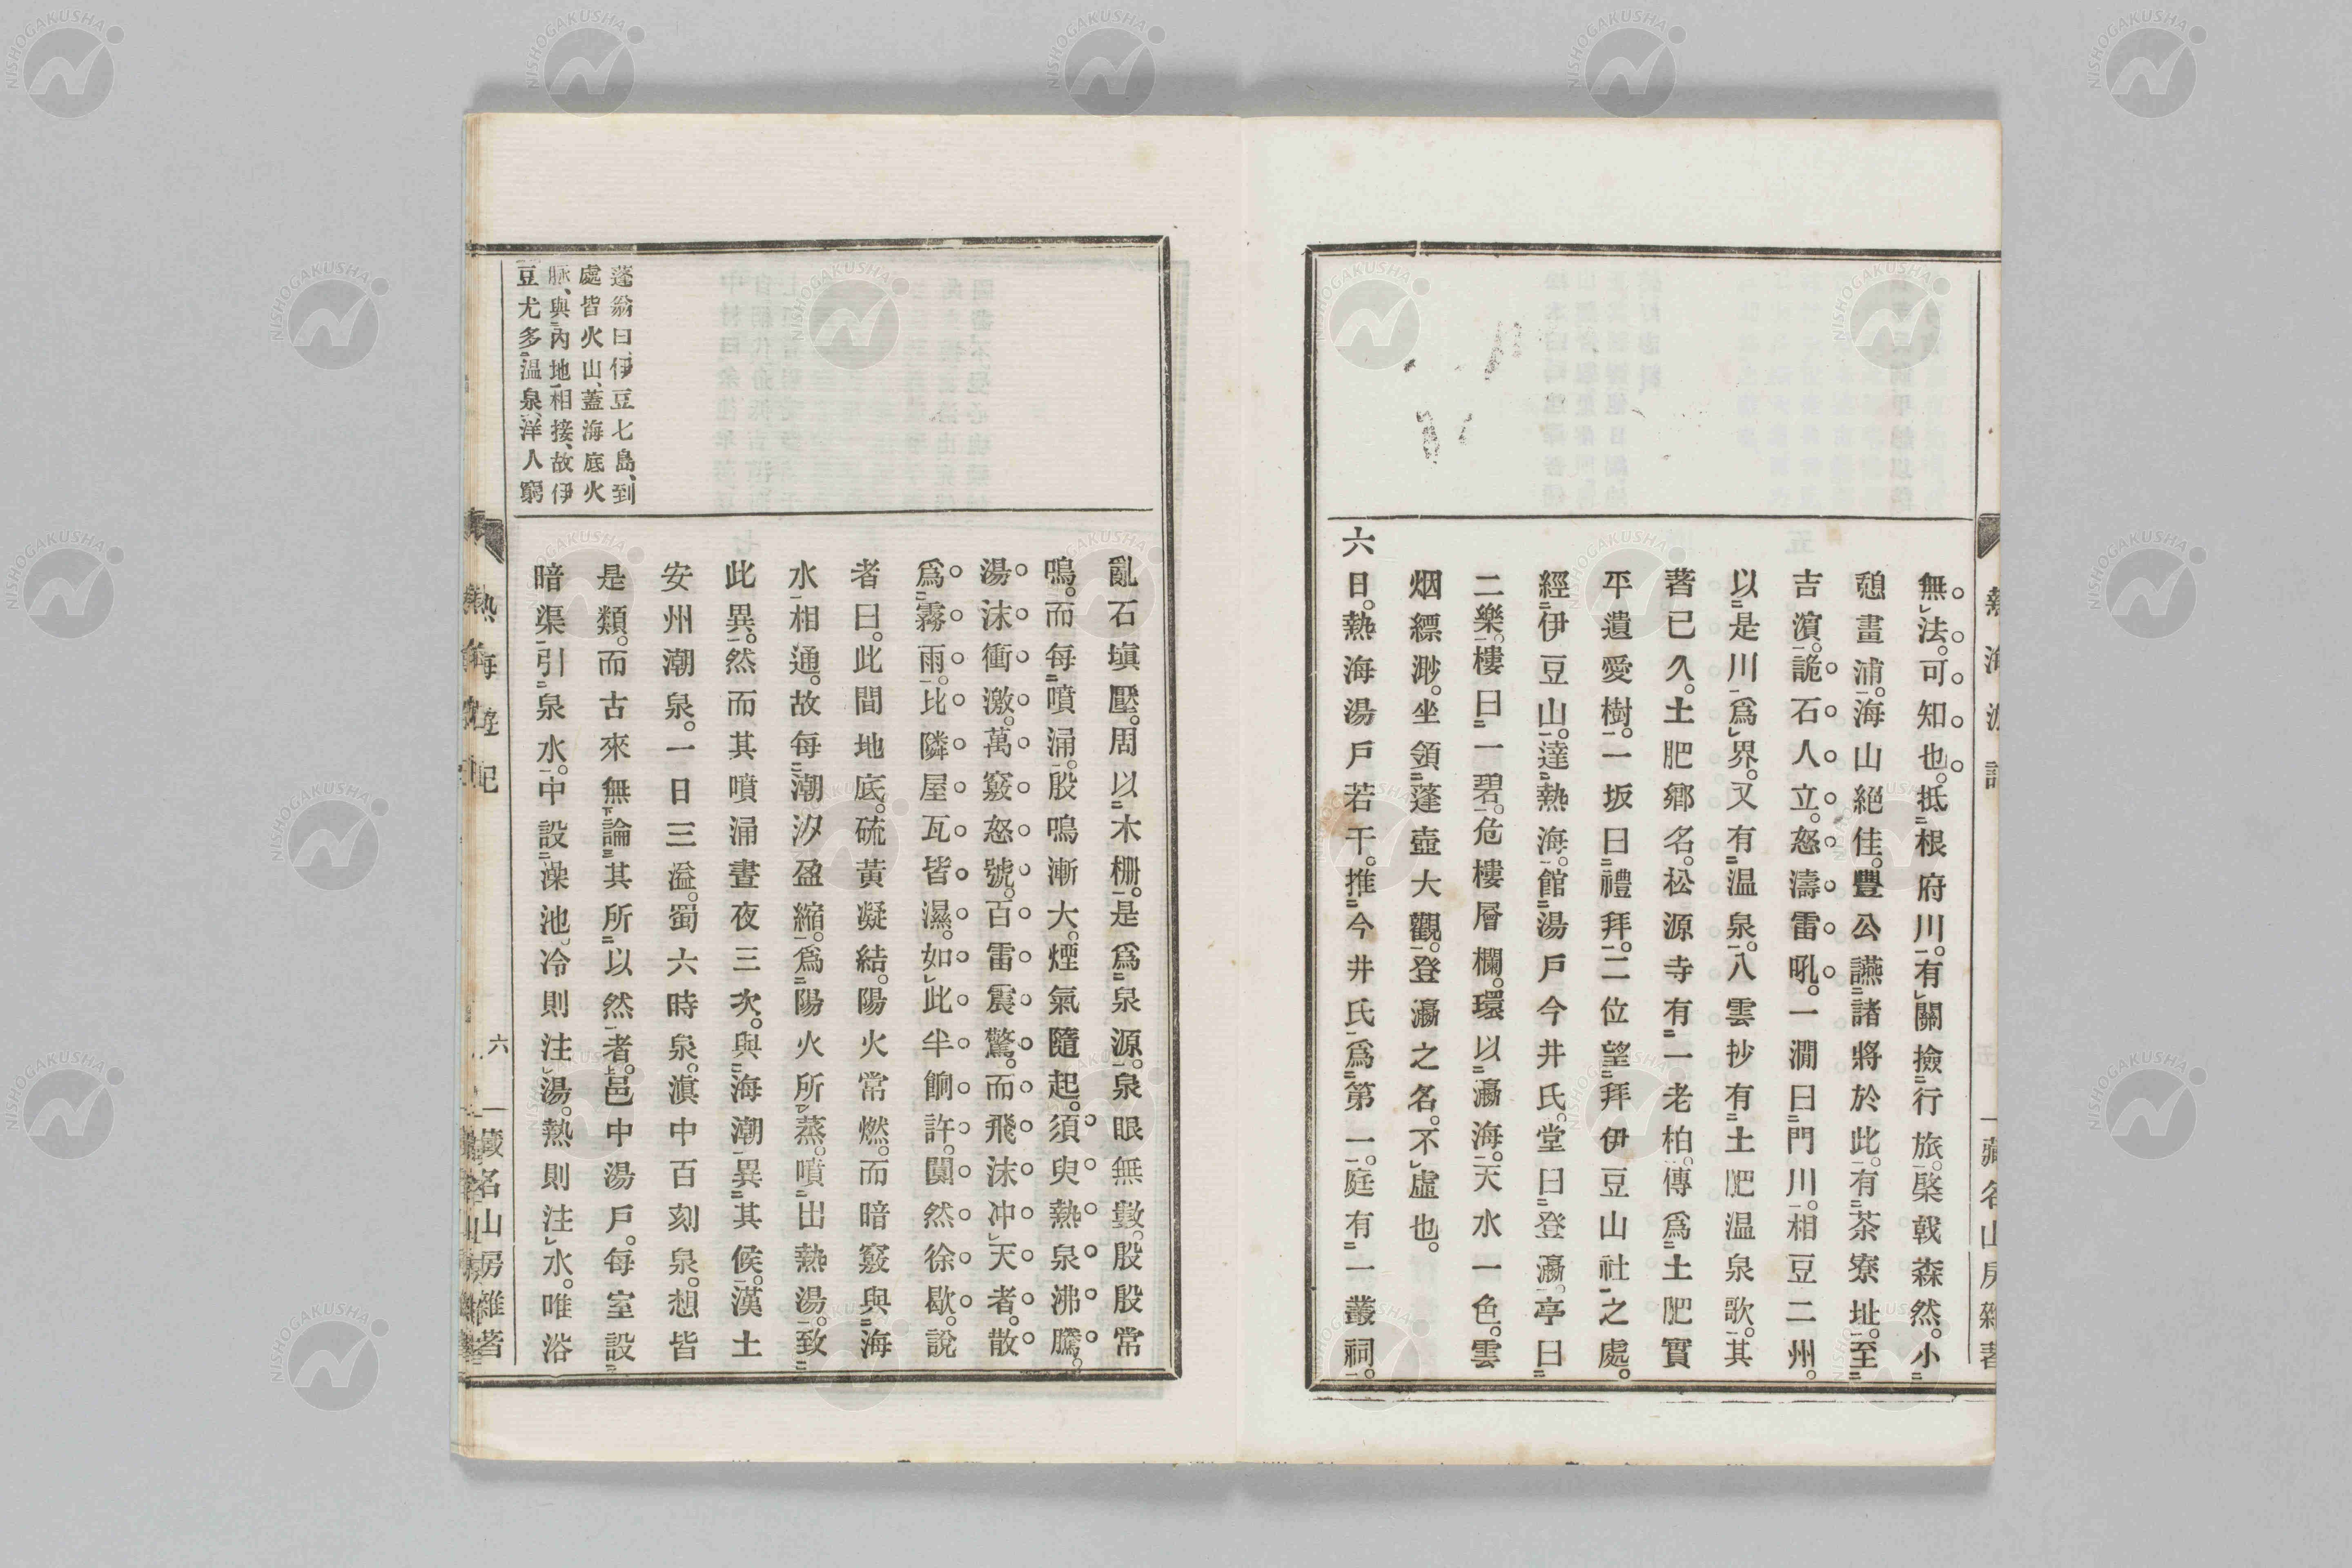 無法。可知也。抵根府川。有關撿行旅。棨戟森然。小
憩晝浦。海山絕佳。豐公讌諸將於此。有茶寮址。至
吉濵。詭石人立。怒濤雷吼。一澗曰門川。相豆二州。
以是川爲界。又有温泉。八雲抄有土肥温泉歌。其
著已久。土肥郷名。松源寺有一老柏。傳爲土肥實
平遺愛樹。一坂曰禮拜。二位望拜伊豆山社之處。
經伊豆山。達熱海。館湯戶今井氏。堂曰登瀛。亭曰
二樂。樓曰一碧。危樓層欄。環以瀛海。天水一色。雲
烟縹渺。坐領蓬壺大觀。登瀛之名。不虛也。
六日。熱海湯戶若干。推今井氏爲第一。庭有一叢祠。
亂石塡壓。周以木柵。是爲泉源。泉眼無數。殷殷常
鳴。而每噴涌。殷鳴漸大。煙氣隨起。須臾熱泉沸騰。
湯沫衝激。萬竅怒號。百雷震驚。而飛沫冲天者。散
爲霧雨。比隣屋瓦皆濕。如此半餉許。闃然徐歇。說
者曰。此間地底。硫黃凝結。陽火常燃。而暗竅與海
水相通。故每潮汐盈縮。爲陽火所蒸。噴出熱湯。致
此異。然而其噴涌晝夜三次。與海潮異其候。漢土
安州潮泉。一日三溢。蜀六時泉。滇中百刻泉。想皆
是類。而古來無論其所以然者。邑中湯戶。每室設
暗渠引泉水。中設澡池。冷則注湯。熱則注水。唯浴
蓬翁曰、伊豆七島、到
處皆火山、蓋海底火
脈、與內地相接、故伊
豆尤多温泉、洋人窮
熱海遊記
六
藏名山房雜著